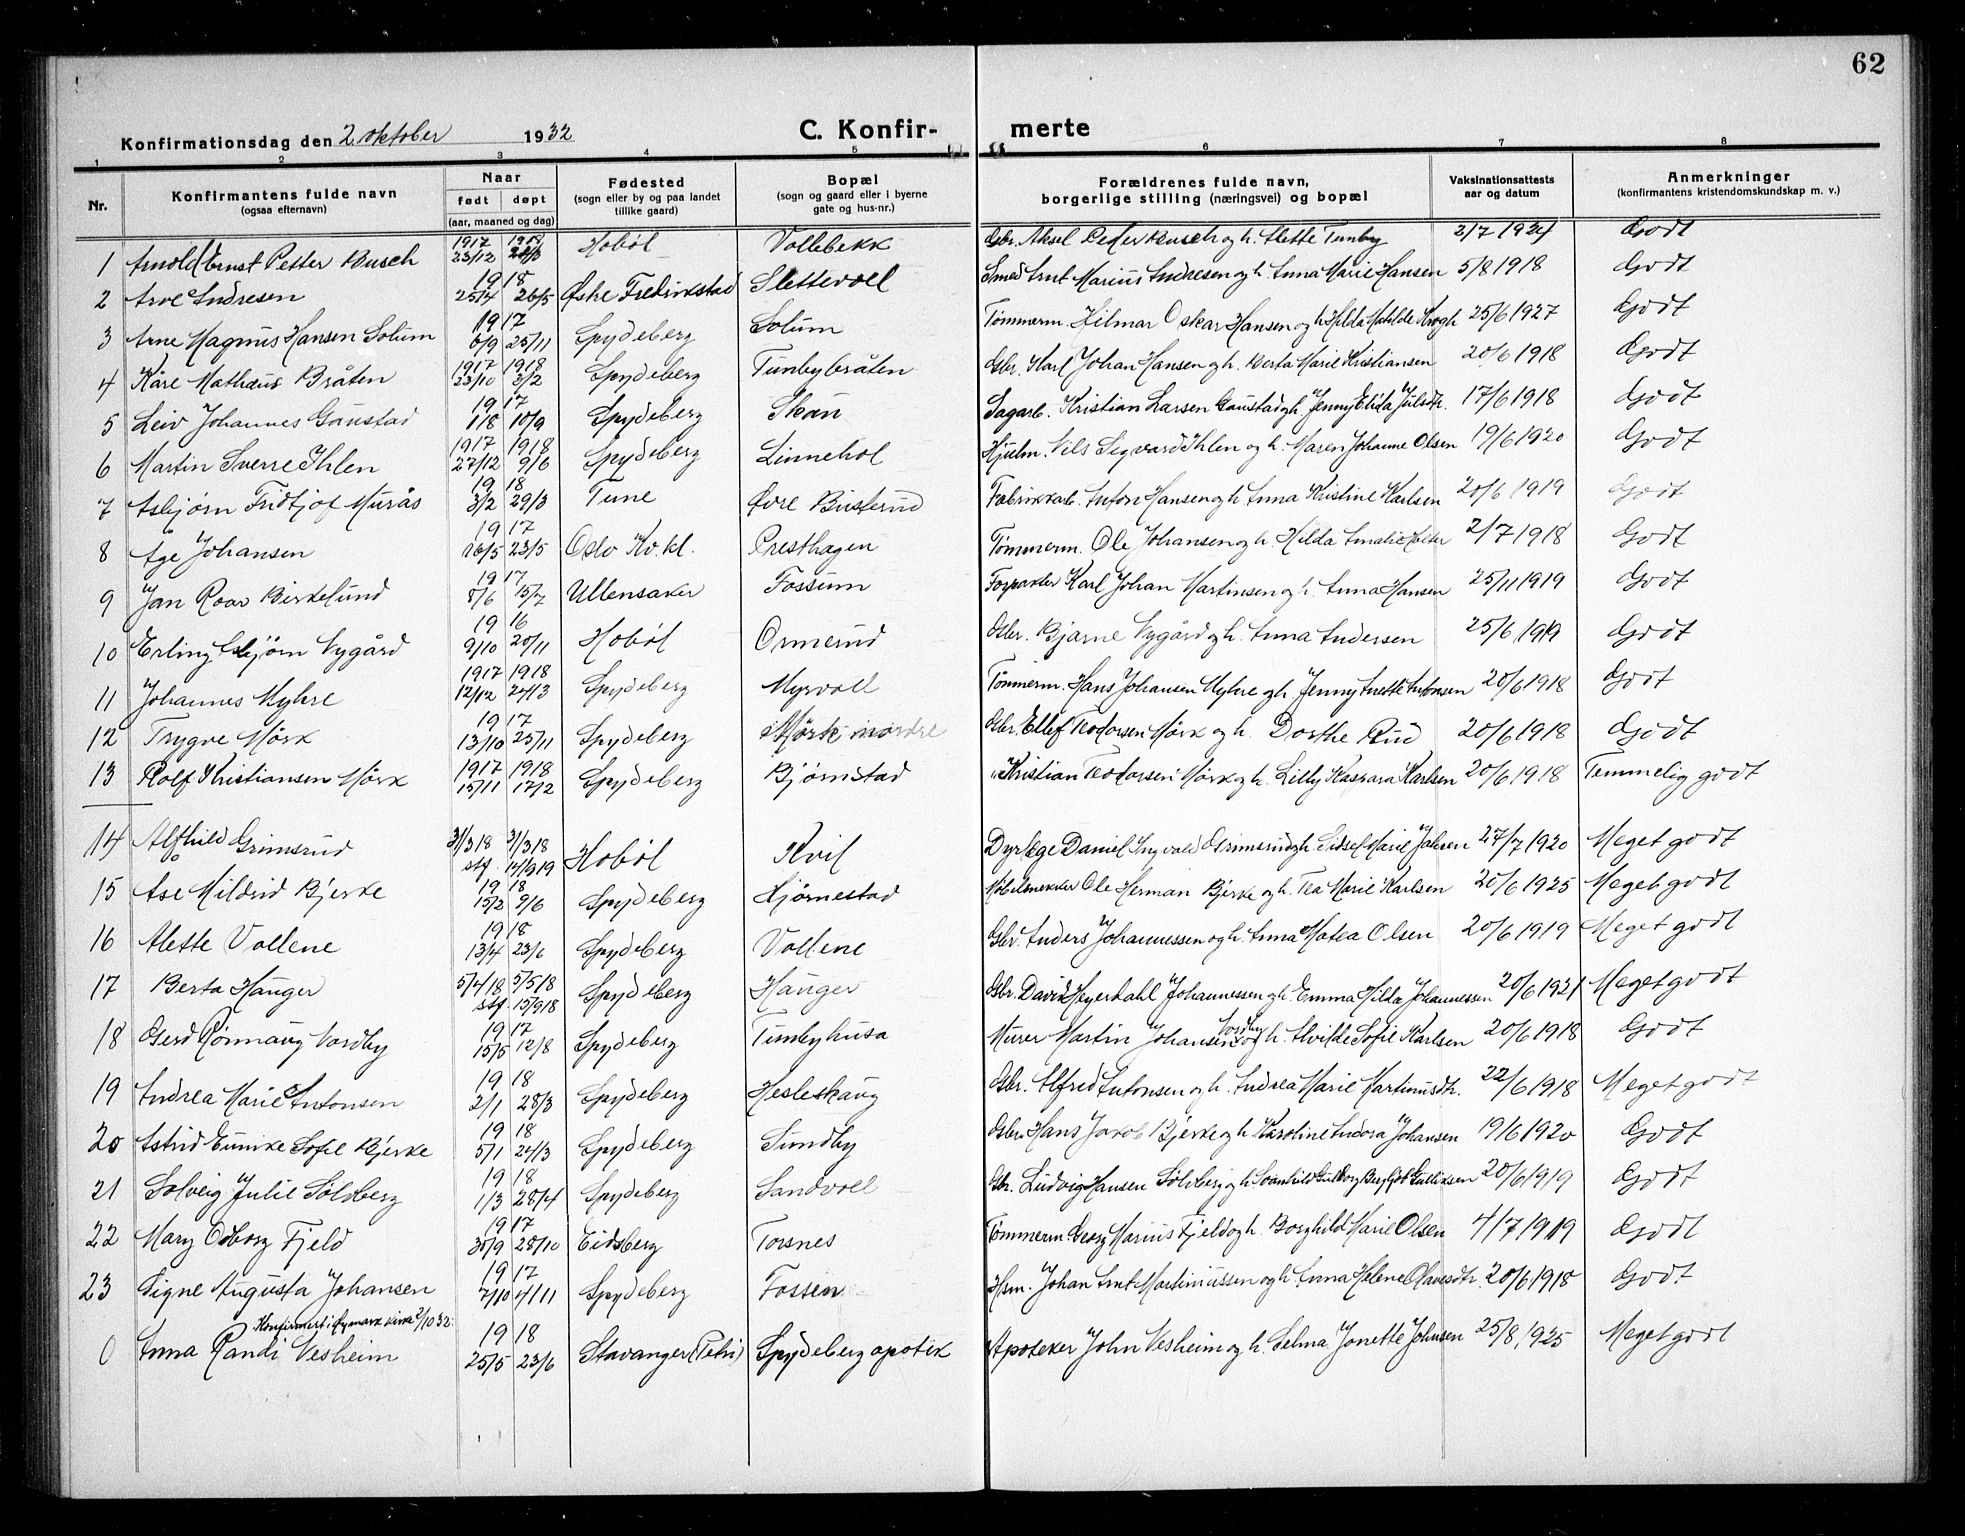 62
Konfirmationsdag den 2 oktober 1932 C. Konfir- merte
1 2 3 4 5 6 7 8
Nr. Konfirmantens fulde navn (ogsaa efternavn) Naar født døpt (aar, maaned og dag) Fødested (sogn eller by og paa landet tillike gaard) Bopæl (sogn og gaard eller i byerne gate og hus-nr.) Forældrenes fulde navn, borgerlige stilling (næringsvei) og bopæl Vaksinationsattests aar og datum Anmerkninger (konfirmantens kristendomskundskap m. v.)
1 Arnold Ernst Petter Busch 1917 23/12 Hobøl Vollebekk Gbr. Aksel Peder Busch og h. Alette Tunby 2/7 1924 Godt
2 Arve Andresen 1918 25/4 26/5 Østre Fredrikstad Slettevoll Smed Arnt Marius Andresen og h. Anna Marie Hansen 5/8 1918 Godt
3 Arne Magnus Hansen Solum 1917 6/9 25/11 Spydeberg Solum Tømmerm. Hilmar Oskar Hansen og h. Hilda Matilde Krogh 25/6 1927 Godt
4 Kåre Mathæus Bråten 1917 1918 23/10 3/2 Spydeberg Tunbybråten Gbr. Karl Johan Hansen og h. Berta Marie Kristiansen 20/6 1918 Godt
5 Leiv Johannes Gaustad 1917 1/8 10/9 Spydeberg Skau Sagarb. Kristian Larsen Gaustad og h. Jenny Elida Julsdtr. 17/6 1918 Godt
6 Martin Sverre Ihlen 1917 1918 27/12 9/6 Spydeberg Linnehol Hjulm. Nils Sigvard Ihlen og h. Maren Johanne Olsen 19/6 1920 Godt
7 Asbjørn Fridtjof Murås 1918 3/2 29/3 Tune Øvre Busterud Fabrikkarb. Anton Hansen og h. Anna Kristine Karlsen 20/6 1919 Godt
8 Åge Johansen 1917 16/5 23/5 Oslo Kv.kl. Presthagen Tømmerm. Ole Johansen og h. Hilda Amalie 2/7 1918 Godt
9 Jan Roar Birkelund 1917 8/6 15/7 Ullensaker Fossum Forpakter Karl Johan Martinsen og h. Anna Hansen 25/11 1919 Godt
10 Erling Asbjørn Nygård 1916 9/10 20/11 Hobøl Ormerud Gbr. Bjarne Nygård og h. Anna Andersen 25/6 1919 Godt
11 Johannes Myhre 1917 1918 12/12 24/3 Spydeberg Myrvoll Tømmerm. Hans Johansen Myhre og h. Jenny Anette Antonsen 20/6 1918 Godt
12 Trygve Mørk 1917 13/10 25/11 Spydeberg Mørk nordre Gbr. Ellef Teodorsen Mørk og h. Dorthe Rud 20/6 1918 Godt
13 Rolf Kristiansen Mørk 1917 1918 15/11 17/2 Spydeberg Bjørnstad " Kristian Teodorsen Mørk og h. Lilly Kaspara Karlsen 20/6 1918 Temmelig godt
14 Alfhild Grimsrud 31/3 18 31/3 18 stf. 14/9 19 Hobøl Kvil Dyrlæge Daniel Ingvald Grimsrud og h. Sidsel Marie 27/7 1920 Meget godt
15 Åse Mildrid Bjerke 1918 15/2 9/6 Spydeberg Hjørnestad Møbelsnekker Ole Herman Bjerke og h. Tea Marie Karlsen 20/6 1925 Meget godt
16 Alette Vollene 1918 13/4 23/6 Spydeberg Vollene Gbr. Anders Johannessen og h. Anna Matea Olsen 20/6 1919 Meget godt
17 Berta Hauger 5/4 18 5/5 18 stf. 15/9 18 Spydeberg Hauger Gbr. David Heyerdahl Johannessen og h. Emma Hilda Johannessen 20/6 1921 Meget godt
18 Gerd Rønnaug Nordby 1917 15/5 12/8 Spydeberg Tunbyhusa Murer Martin Johansen Nordby og h. Alvilde Sofie Karlsen 20/6 1918 Godt
19 Andrea Marie Antonsen 1918 2/1 28/3 Spydeberg Hesleskaug Gbr. Alfred Antonsen og h. Andrea Marie Martinusdtr. 22/6 1918 Meget godt
20 Astrid Eunike Sofie Bjerke 1918 5/1 24/3 Spydeberg Sundby Gbr. Hans Jakob Bjerke og h. Karoline Andora Johansen 19/6 1920 Godt
21 Solveig Julie Solberg 1918 1/3 28/4 Spydeberg Sandvoll Gbr. Ludvig Hansen Solberg og h. Svanhild Gulliksen 20/6 1919 Godt
22 Mary Osborg Fjeld 1917 30/9 28/10 Eidsberg Torsnes Tømmerm. Georg Marius Fjeld og h. Borghild Marie Olsen 4/7 1919 Godt
23 Signe Augusta Johansen 1917 7/10 4/11 Spydeberg Fossen Hsm. Johan Arnt Martiniussen og h. Anna Helene Olavesdtr. 20/6 1918 Godt
Konfirmert i Øymark kirke 2/10 32.
0 Anna Randi Vesheim 1918 25/5 23/6 Stavanger (Petri) Spydeberg apotek Apoteker John Vesheim og h. Selma Jonette Johnsen 25/8 1925 Meget godt